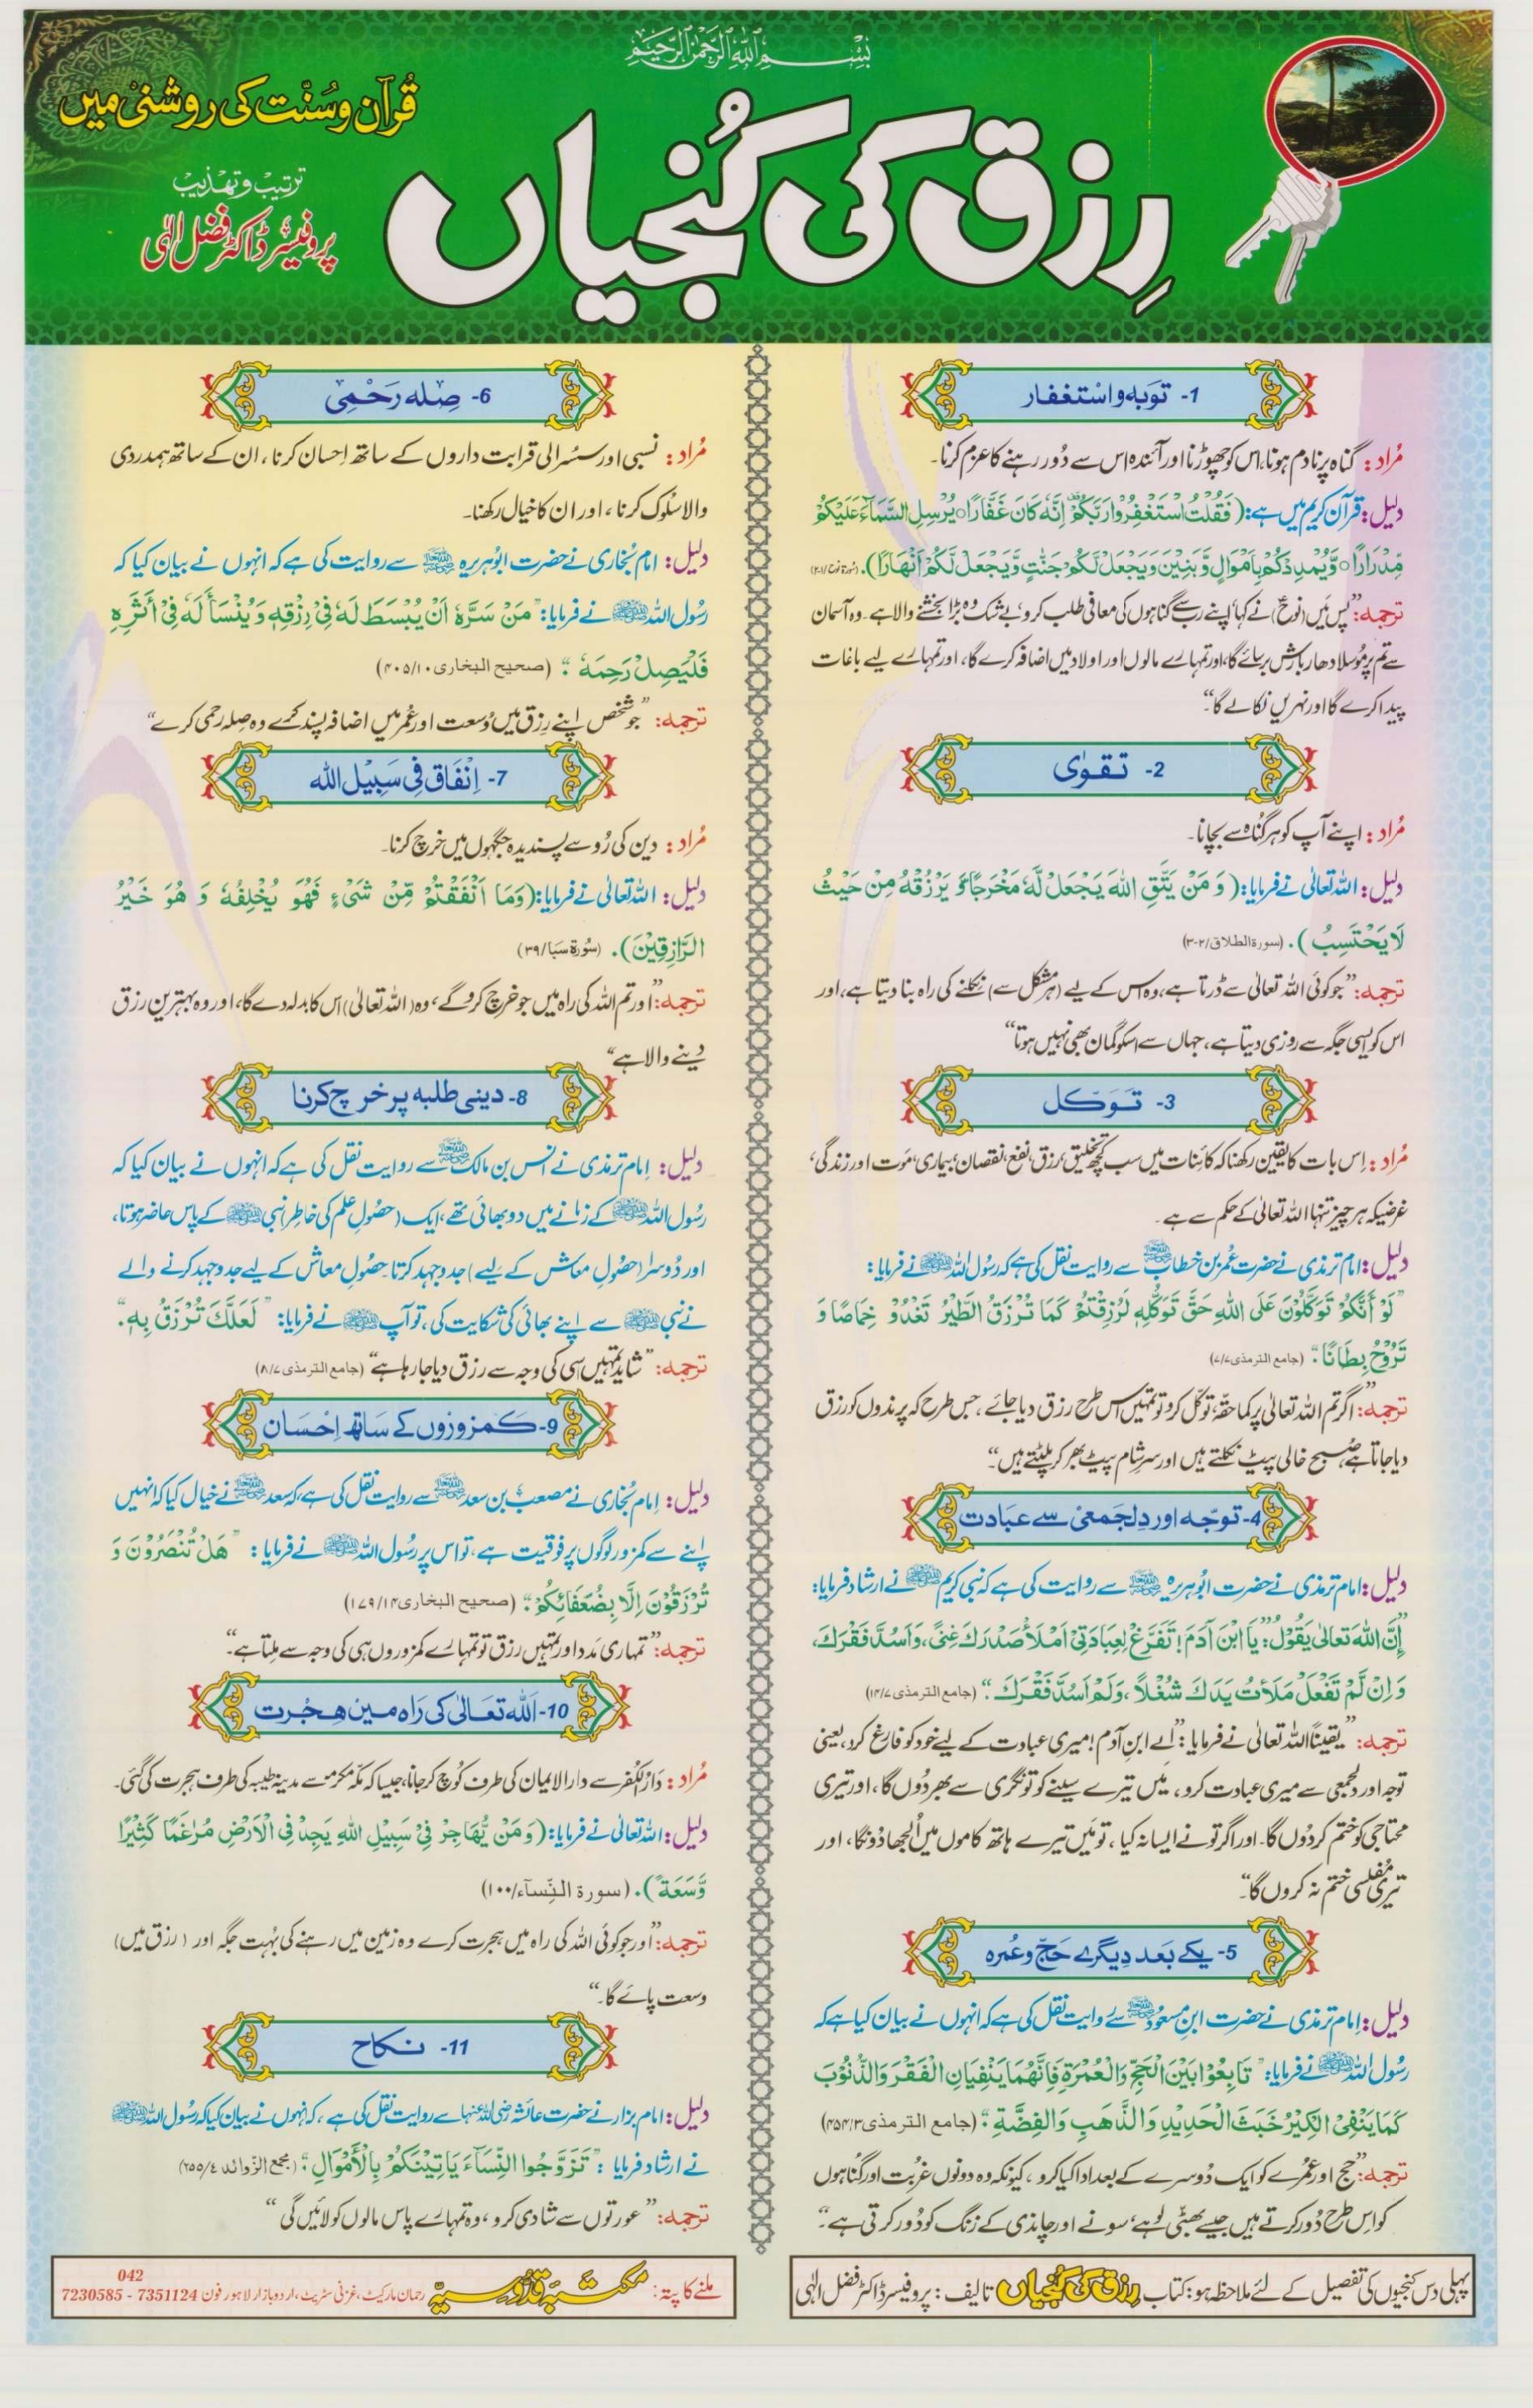 بِسْمِ اللهِ الرَّحْمٰنِ الرَّحِيْمِ
قُرآن وسُنّت کی روشنی میں
رِزق کی کُنجیاں
ترتیب وتهذیب
پروفیسر ڈاکٹر فضل الٰہی
1- توبہ واسْتغفار
مُراد : گناہ پر نادم ہونا، اس کو چھوڑنا اور آئندہ اس سے دُور رہنے کا عزم کرنا۔
دلیل : قرآن کریم میں ہے: ( فَقُلْتُ اسْتَغْفِرُوْا رَبَّكُمْ اِنَّهٗ كَانَ غَفَّارًا ۝ يُّرْسِلِ السَّمَآءَ عَلَيْكُمْ
مِّدْرَارًا ۝ وَّيُمْدِدْكُمْ بِاَمْوَالٍ وَّبَنِيْنَ وَيَجْعَلْ لَّكُمْ جَنّٰتٍ وَّيَجْعَلْ لَّكُمْ اَنْهَارًا ).
ترجمہ: ”پس میں (نوحؑ) نے کہا اپنے رب سے گناہوں کی معافی طلب کرو، بے شک وہ بڑا بخشنے والا ہے۔ وہ آسمان
سے تم پر مُوسلا دھار بارش برسائے گا، اور تمہارے مالوں اور اولاد میں اضافہ کرے گا، اور تمہارے لیے باغات
پیدا کرے گا اور نہریں نکالے گا“۔
2- تقویٰ
مُراد : اپنے آپ کو ہر گناہ سے بچانا۔
دلیل : اللہ تعالیٰ نے فرمایا: ( وَ مَنْ يَّتَّقِ اللهَ يَجْعَلْ لَّهٗ مَخْرَجًا ۝ وَّ يَرْزُقْهُ مِنْ حَيْثُ
لَا يَحْتَسِبُ ). (سورة الطلاق/۲-۳)
ترجمہ: ”جو کوئی اللہ تعالیٰ سے ڈرتا ہے، وہ اس کے لیے (ہر مشکل سے) نکلنے کی راہ بنا دیتا ہے، اور
اس کو ایسی جگہ سے روزی دیتا ہے، جہاں سے اسکو گمان بھی نہیں ہوتا“
3- تَوَکّل
مُراد : اِس بات کا یقین رکھنا کہ کائنات میں سب کچھ تخلیق، رزق، نفع، نقصان، بیماری، موت اور زندگی،
غرضیکہ ہر چیز تنہا اللہ تعالیٰ کے حکم سے ہے۔
دلیل : امام ترمذی نے حضرت عُمر بن خطاب رضی اللہ عنہ سے روایت نقل کی ہے کہ رسُول اللہ ﷺ نے فرمایا :
”لَوْ أَنَّكُمْ تَوَكَّلُوْنَ عَلَى اللهِ حَقَّ تَوَكُّلِهٖ لَرُزِقْتُمْ كَمَا تُرْزَقُ الطَّيْرُ تَغْدُوْ خِمَاصًا وَ
تَرُوْحُ بِطَانًا“. (جامع الترمذی ۷/۷)
ترجمہ: ”اگر تم اللہ تعالیٰ پر کماحقہٗ توکّل کرو تو تمہیں اس طرح رزق دیا جائے، جس طرح کہ پرندوں کو رزق
دیا جاتا ہے، صُبح خالی پیٹ نکلتے ہیں اور سرِشام پیٹ بھر کر پلٹتے ہیں“۔
4- توجّہ اور دِلجمعی سے عبادت
دلیل : امام ترمذی نے حضرت ابُوہریرہ رضی اللہ عنہ سے روایت کی ہے کہ نبی کریم ﷺ نے ارشاد فرمایا :
”إِنَّ اللهَ تَعَالٰى يَقُوْلُ: يَا ابْنَ آدَمَ! تَفَرَّغْ لِعِبَادَتِيْ اَمْلَأْ صَدْرَكَ غِنًى، وَاَسُدَّ فَقْرَكَ،
وَ اِنْ لَّمْ تَفْعَلْ مَلَأْتُ يَدَكَ شُغْلًا، وَلَمْ اَسُدَّ فَقْرَكَ“. (جامع الترمذی ۷/۱۴)
ترجمہ: ”یقیناً اللہ تعالیٰ نے فرمایا: ”اے ابنِ آدم! میری عبادت کے لیے خود کو فارغ کرو، یعنی
توجہ اور دلجمعی سے میری عبادت کرو، میں تیرے سینے کو تونگری سے بھر دُوں گا، اور تیری
محتاجی کو ختم کر دُوں گا۔ اور اگر تو نے ایسا نہ کیا، تو میں تیرے ہاتھ کاموں میں اُلجھا دُونگا، اور
تیری مُفلسی ختم نہ کروں گا“۔
5- یکے بَعد دیگرے حَجّ و عُمرہ
دلیل : اِمام ترمذی نے حضرت ابنِ مسعُود رضی اللہ عنہ سے روایت نقل کی ہے کہ انہوں نے بیان کیا ہے کہ
رسُول اللہ ﷺ نے فرمایا: ”تَابِعُوْا بَيْنَ الْحَجِّ وَالْعُمْرَةِ فَاِنَّهُمَا يَنْفِيَانِ الْفَقْرَ وَالذُّنُوْبَ
كَمَا يَنْفِى الْكِيْرُ خَبَثَ الْحَدِيْدِ وَالذَّهَبِ وَالْفِضَّةِ“. (جامع الترمذی ۳/۴۵۴)
ترجمہ: ”حج اور عُمرے کو ایک دُوسرے کے بعد ادا کیا کرو، کیونکہ وہ دونوں غُربت اور گناہوں
کو اِس طرح دُور کرتے ہیں جیسے بھٹّی لوہے، سونے اور چاندی کے زنگ کو دُور کرتی ہے“۔
6- صِلہ رَحْمِی
مُراد : نسبی اور سُسرالی قرابت داروں کے ساتھ اِحسان کرنا، ان کے ساتھ ہمدردی
والا سلُوک کرنا، اور ان کا خیال رکھنا۔
دلیل : امام بُخاری نے حضرت ابُوہریرہ رضی اللہ عنہ سے روایت کی ہے کہ انہوں نے بیان کیا کہ
رسُول اللہ ﷺ نے فرمایا: ”مَنْ سَرَّهٗ اَنْ يُبْسَطَ لَهٗ فِيْ رِزْقِهٖ وَ يُنْسَأَ لَهٗ فِيْ أَثَرِهٖ
فَلْيَصِلْ رَحِمَهٗ“. (صحیح البخاری ۱۰/۴۰۵)
ترجمہ: ”جو شخص اپنے رِزق میں وُسعت اور عُمر میں اضافہ پسند کرے وہ صِلہ رحمی کرے“
7- اِنْفَاق فِی سَبِیْلِ الله
مُراد : دین کی رُو سے پسندیدہ جگہوں میں خرچ کرنا۔
دلیل : اللہ تعالیٰ نے فرمایا: (وَمَا اَنْفَقْتُمْ مِّنْ شَيْءٍ فَهُوَ يُخْلِفُهٗ وَ هُوَ خَيْرُ
الرَّازِقِيْنَ). (سُورة سَبا/۳۹)
ترجمہ: ”اور تم اللہ کی راہ میں جو خرچ کرو گے، وہ (اللہ تعالیٰ) اس کا بدلہ دے گا، اور وہ بہترین رزق
دینے والا ہے“
8- دینی طلبہ پر خرچ کرنا
دلیل : اِمام ترمذی نے انس بن مالک رضی اللہ عنہ سے روایت نقل کی ہے کہ انہوں نے بیان کیا کہ
رسُول اللہ ﷺ کے زمانے میں دو بھائی تھے، ایک (حصُولِ علم کی خاطر) نبی ﷺ کے پاس حاضر ہوتا،
اور دُوسرا (حصُولِ معاش کے لیے) جدوجہد کرتا۔ حصُولِ معاش کے لیے جدوجہد کرنے والے
نے نبی ﷺ سے اپنے بھائی کی شکایت کی، تو آپ ﷺ نے فرمایا: ”لَعَلَّكَ تُرْزَقُ بِهٖ“.
ترجمہ: ”شاید تمہیں اسی کی وجہ سے رزق دیا جارہا ہے“ (جامع الترمذی ۷/۸)
9- کمزوروں کے ساتھ اِحْسَان
دلیل : اِمام بُخاری نے مصعب بن سعد رضی اللہ عنہ سے روایت نقل کی ہے، کہ سعد رضی اللہ عنہ نے خیال کیا کہ انہیں
اپنے سے کمزور لوگوں پر فوقیت ہے، تو اس پر رسُول اللہ ﷺ نے فرمایا : ”هَلْ تُنْصَرُوْنَ وَ
تُرْزَقُوْنَ اِلَّا بِضُعَفَائِكُمْ“. (صحیح البخاری ۱۴/۱۷۹)
ترجمہ: ”تمہاری مَدد اور تمہیں رزق تو تمہارے کمزوروں ہی کی وجہ سے مِلتا ہے“۔
10- اَللہ تعَالیٰ کی رَاہ میں ھجْرت
مُراد : دَارُ الکُفر سے دارالایمان کی طرف کُوچ کر جانا، جیسا کہ مکّہ مکرمہ سے مدینہ طیبہ کی طرف ہجرت کی گئی۔
دلیل : اللہ تعالیٰ نے فرمایا: (وَ مَنْ يُّهَاجِرْ فِيْ سَبِيْلِ اللهِ يَجِدْ فِى الْاَرْضِ مُرٰغَمًا كَثِيْرًا
وَّسَعَةً). (سورة النِّسآء/۱۰۰)
ترجمہ: ”اور جو کوئی اللہ کی راہ میں ہجرت کرے وہ زمین میں رہنے کی بہُت جگہ اور (رزق میں)
وسعت پائے گا۔“
11- نکاح
دلیل : امام بزار نے حضرت عائشہ رضی اللہ عنہا سے روایت نقل کی ہے، کہ انہوں نے بیان کیا کہ رسُول اللہ ﷺ
نے ارشاد فرمایا : ”تَزَوَّجُوا النِّسَآءَ يَاْتِيْنَكُمْ بِالْأَمْوَالِ“. (مجمع الزّوائد ۴/۲۵۵)
ترجمہ: ”عورتوں سے شادی کرو، وہ تمہارے پاس مالوں کو لائیں گی“
پہلی دس کنجیوں کی تفصیل کے لئے ملاحظہ ہو : کتاب رزق کی کُنجیاں تالیف : پروفیسر ڈاکٹر فضل الٰہی
ملنے کا پتہ : مکتبہ قدوسیہ رحمان مارکیٹ، غزنی سٹریٹ، اردو بازار لاہور فون 042 7351124 - 7230585